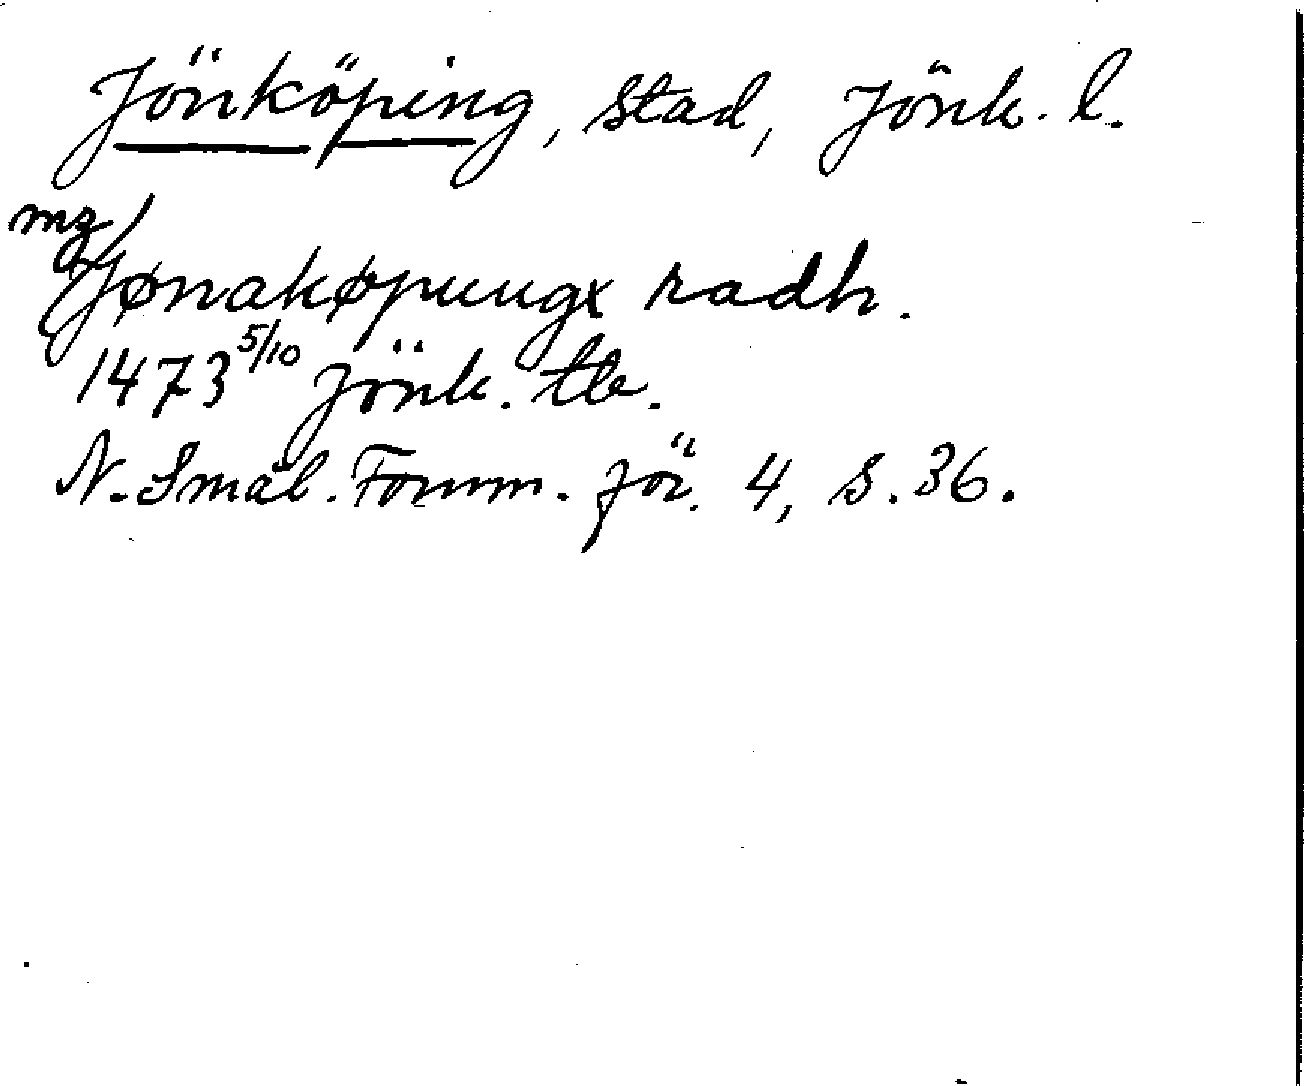 Jönköping, stad, Jönk. l.
mz)
Jønakøpungx radh.
1473 5/10 Jönk. tb.
N. Smål. Fornm. för. 4, s. 36.